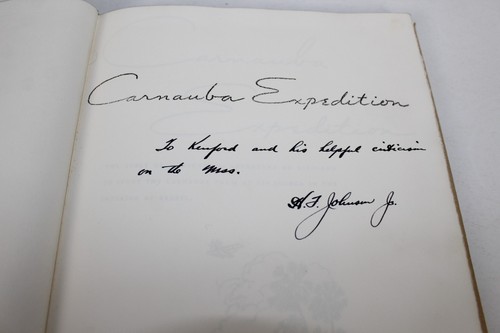 Carnauba Expedition
To Kenford and his helpful criticism
on the mss.
H.F. Johnson Jr.